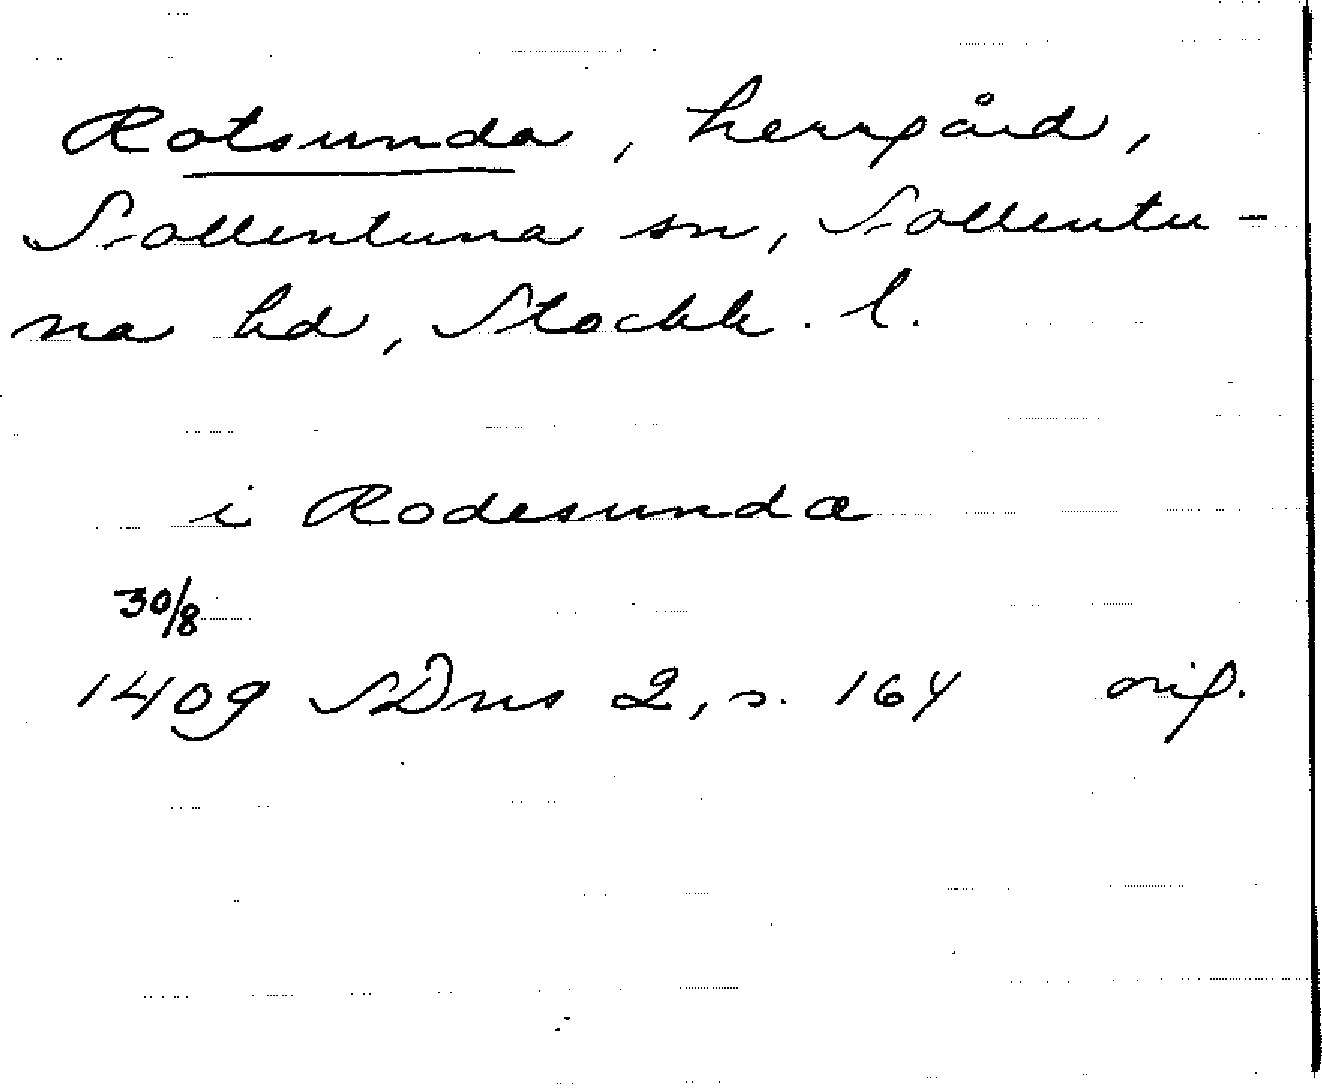 Rotsunda, herrgård,
Sollentuna sn, Sollentu-
na hd, Stockh. l.
i Rodesundæ
30/8
1409 SDns 2, s. 164 orig.